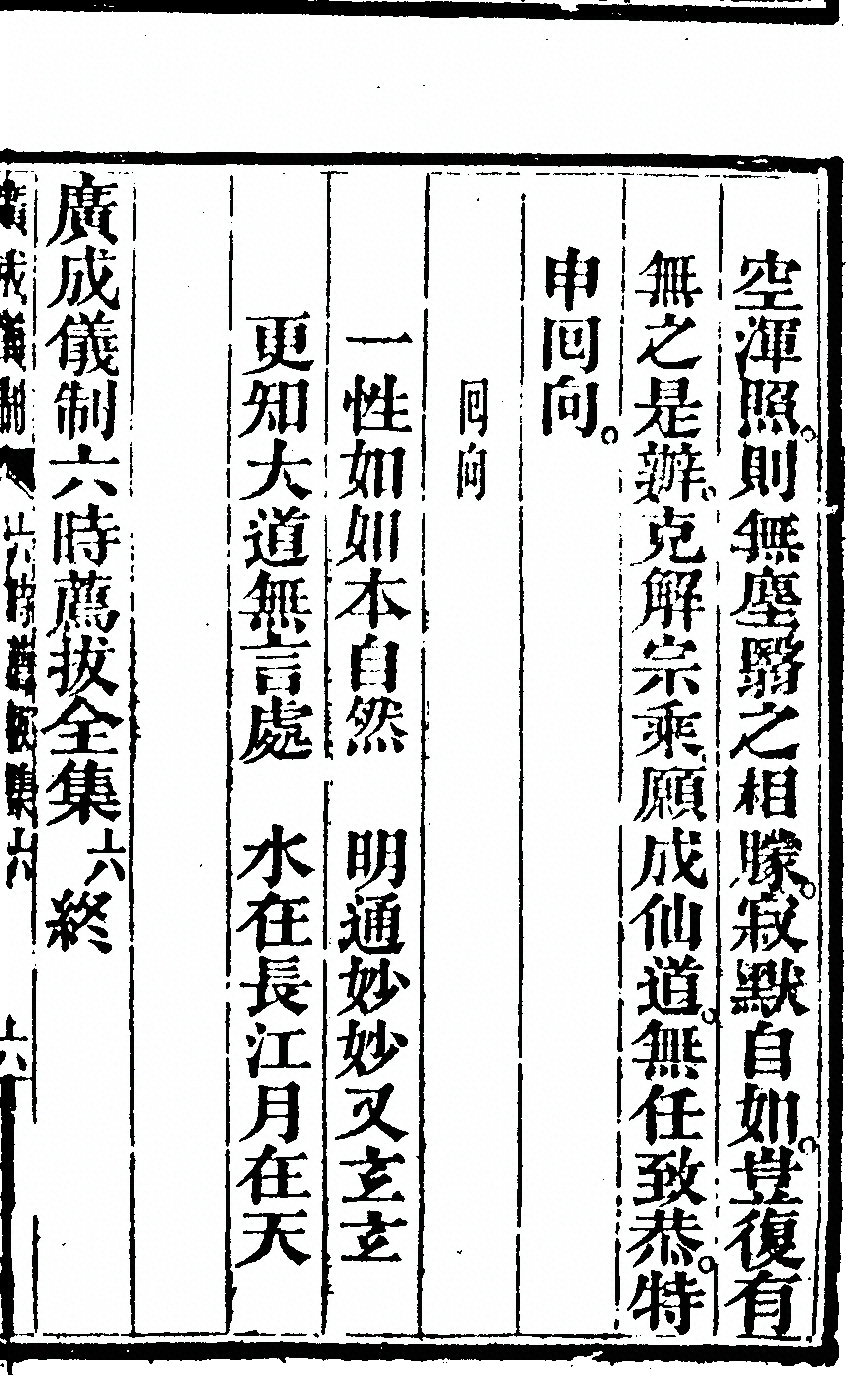 空渾照。則無塵翳之相朦。寂默自如。豈復有
無之是辦。克解宗乘願成仙道。無任致恭。特
申囘向。
囘向
一性如如本自然　明通妙妙又玄玄
更知大道無言處　水在長江月在天
廣成儀制六時薦拔全集六終
廣成儀制　六時薦拔集六　六